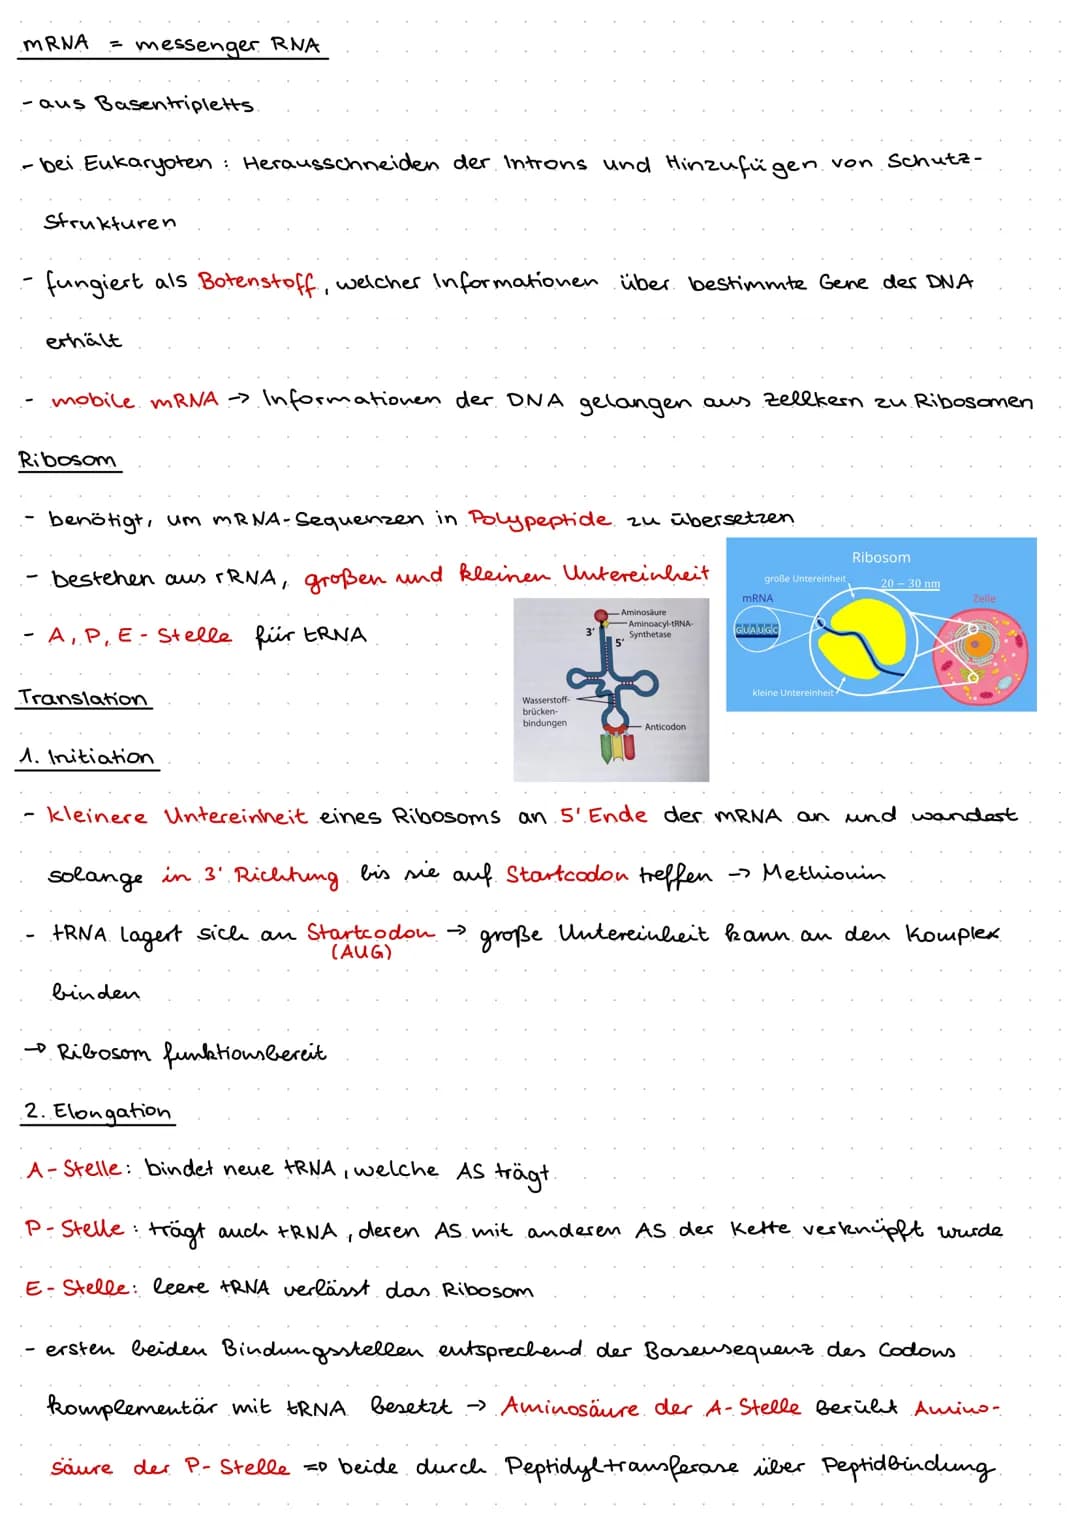 mRNA = messenger RNA
- aus Basentripletts
- bei Eukaryoten : Herausschneiden der Introns und Hinzufügen von Schutz-
Strukturen
- fungiert als Botenstoff, welcher Informationen über bestimmte Gene der DNA
erhält
- mobile mRNA → Informationen der DNA gelangen aus Zellkern zu Ribosomen
Ribosom
- benötigt, um mRNA-Sequenzen in Polypeptide zu übersetzen
- bestehen aus rRNA, großen und kleinen Untereinheit
- A, P, E - Stelle für tRNA
Ribosom
große Untereinheit
20 – 30 nm
mRNA
Zelle
GUAUGC
kleine Untereinheit
Aminosäure
Aminoacyl-tRNA-
Synthetase
3'
5'
Wasserstoff-
brücken-
bindungen
Anticodon
Translation
1. Initiation
- kleinere Untereinheit eines Ribosoms an 5' Ende der mRNA an und wandert
solange in 3' Richtung bis sie auf Startcodon treffen → Methionin
- tRNA lagert sich an Startcodon → große Untereinheit kann an den Komplex
(AUG)
binden
→ Ribosom funktionsbereit
2. Elongation
A - Stelle: bindet neue tRNA, welche AS trägt
P - Stelle : trägt auch tRNA, deren AS mit anderen AS der Kette verknüpft wurde
E - Stelle: leere tRNA verlässt das Ribosom
- ersten beiden Bindungsstellen entsprechend der Basensequenz des Codons
komplementär mit tRNA besetzt → Aminosäure der A - Stelle berüht Amino-
säure der P - Stelle ⇒ beide durch Peptidyltransferase über Peptidbindung